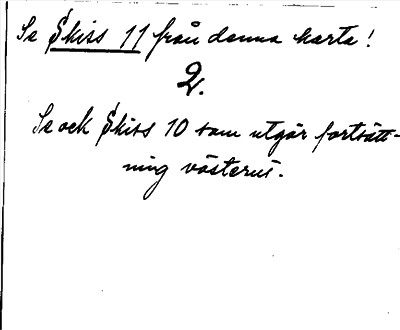 Se Skiss 11 från denna karta!
2.
Se och Skiss 10 som utgör fortsätt-
ning västerut.